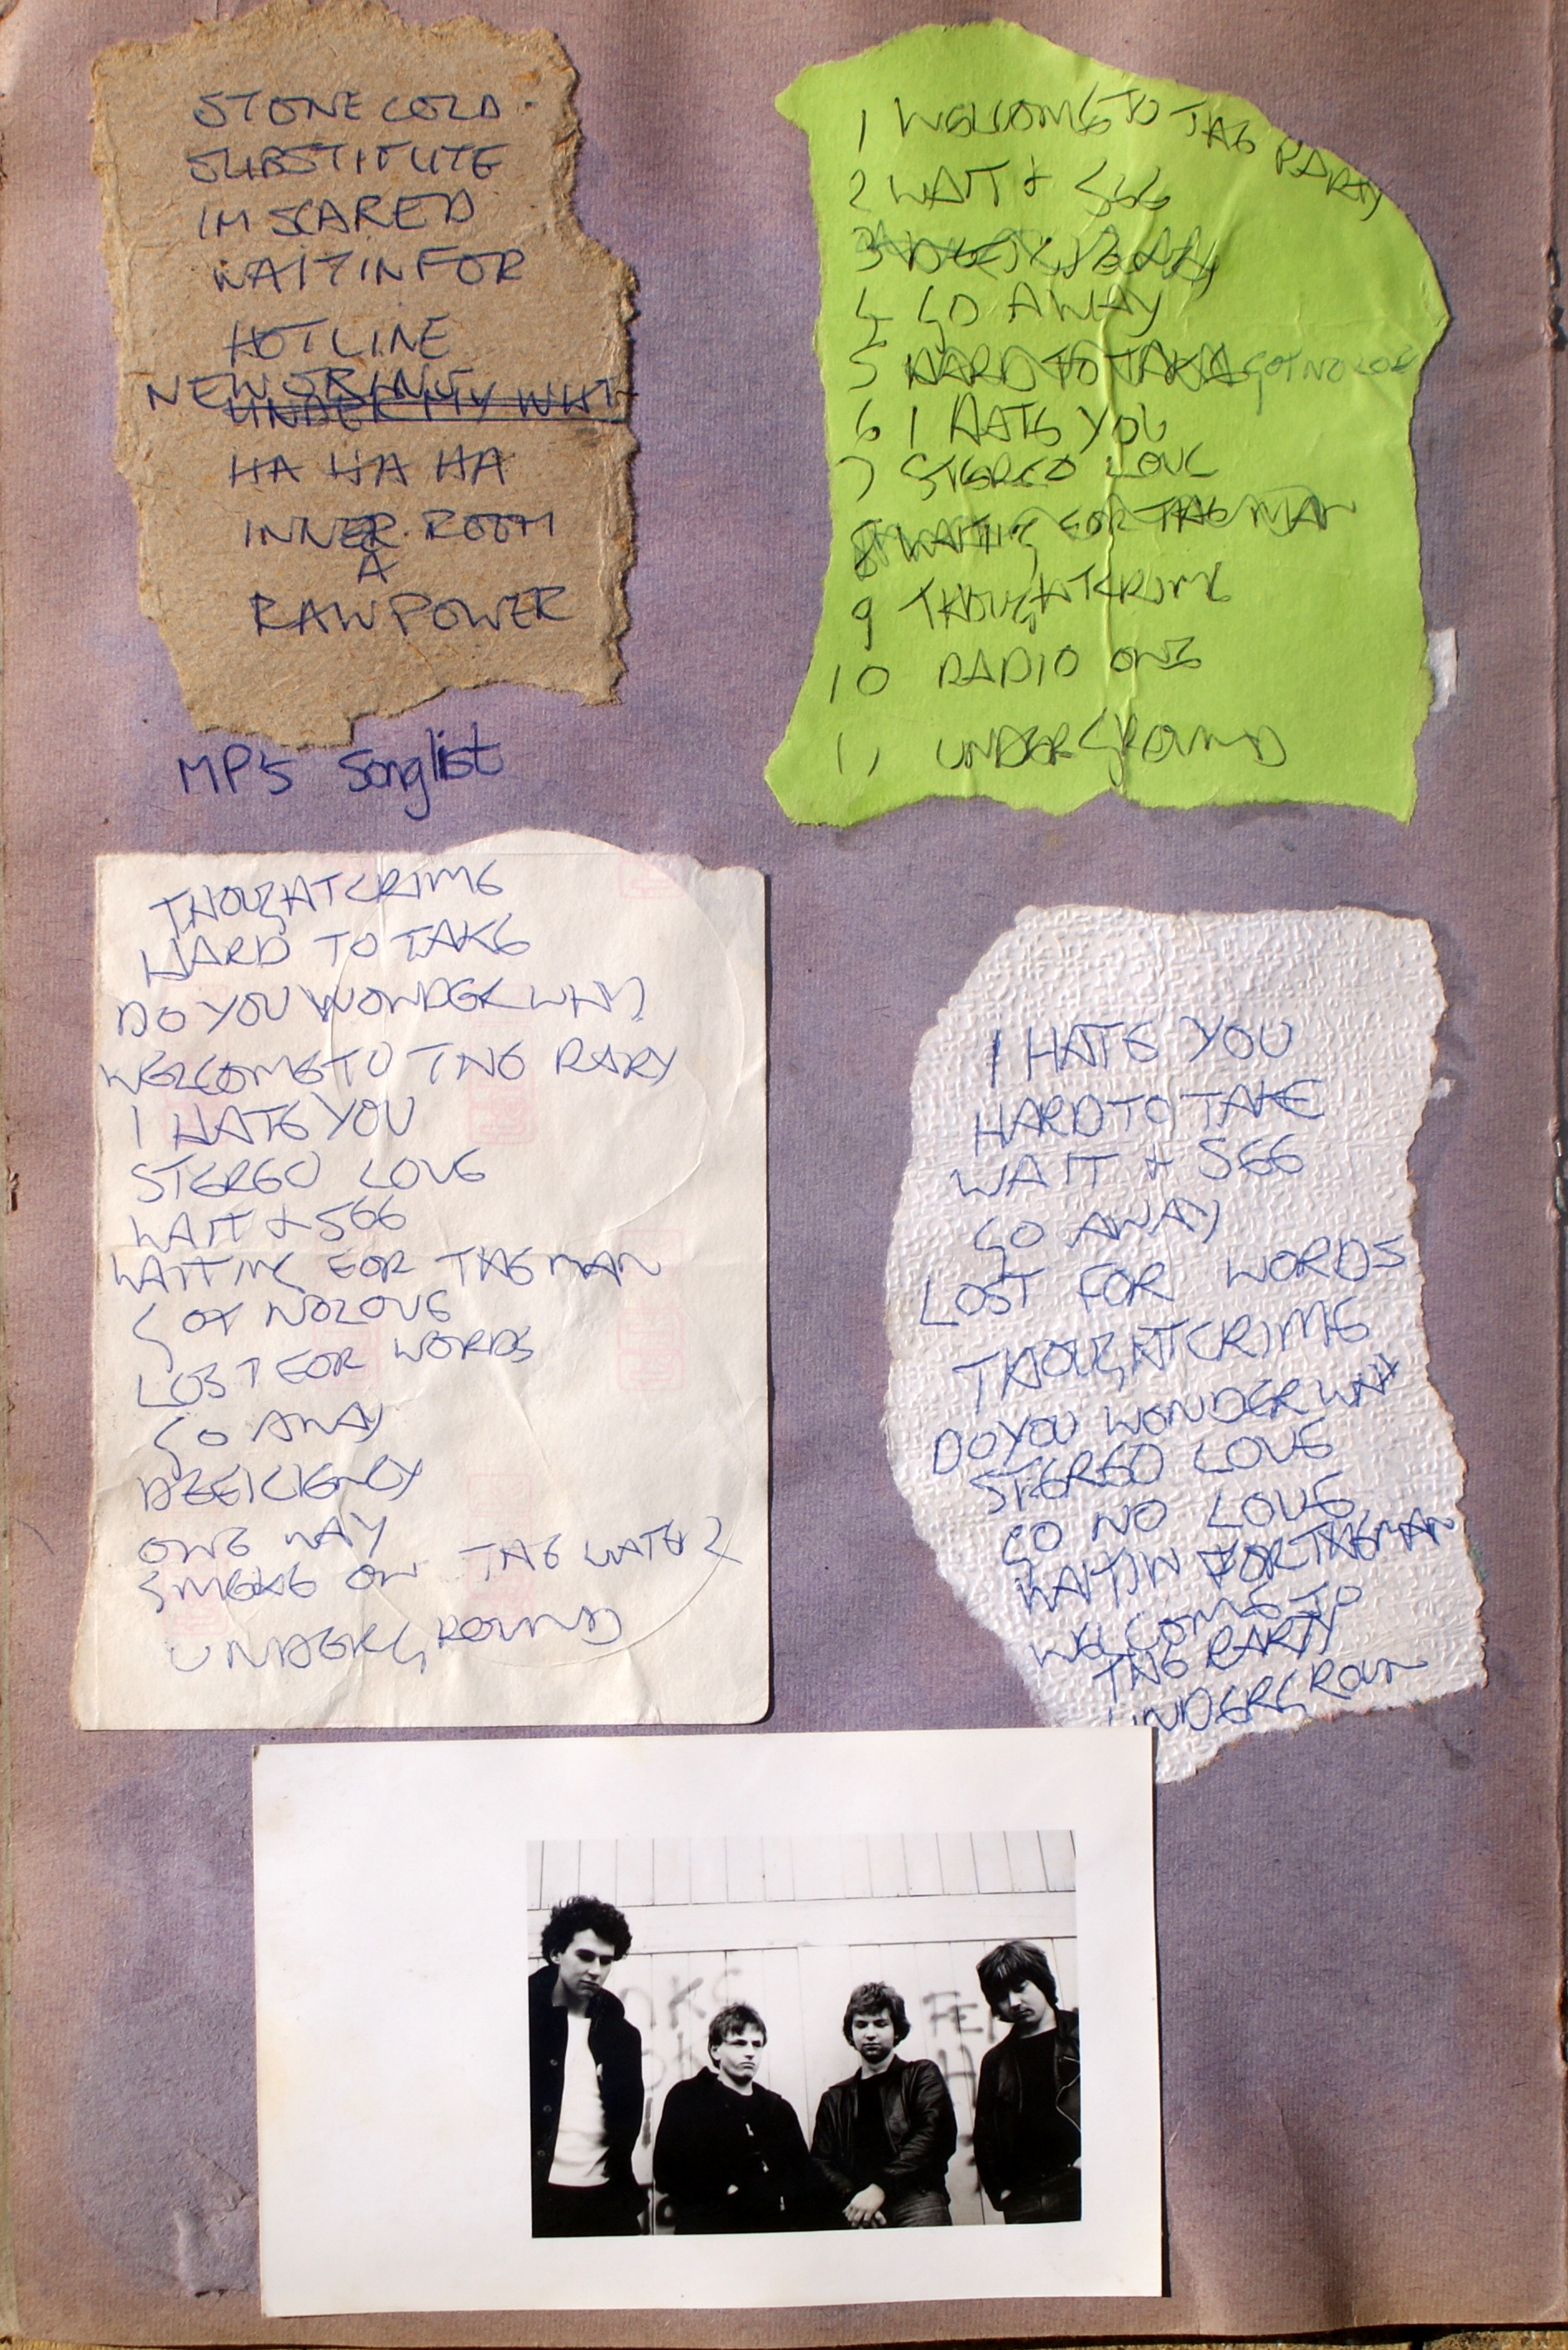 STONE COLD.
SUBSTITUTE
IM SCARED
WAITIN FOR
HOTLINE
NEW STRING
UNDER MY
HA HA HA
INNER ROOM
A
RAW POWER
MP5 Songlist
1 WELCOME TO THE PARTY
2 WAIT & SEE
3
4 GO AWAY
5 HARD TO TAKE GOT NO LOVE
6 I HATE YOU
7 STEREO LOVE
8 WAITING FOR THE MAN
9 THOUGHTCRIME
10 RADIO ONE
11 UNDERGROUND
THOUGHTCRIME
HARD TO TAKE
DO YOU WONDER WHY
WELCOME TO THE PARY
I HATE YOU
STEREO LOVE
WAIT & SEE
WAITING FOR THE MAN
GOT NO LOVE
LOST FOR WORDS
GO AWAY
DEFICIENCY
ONE WAY
SMOKE ON THE WATER
UNDERGROUND
I HATE YOU
HARD TO TAKE
WAIT & SEE
GO AWAY
LOST FOR WORDS
THOUGHTCRIME
DO YOU WONDER WHY
STEREO LOVE
GO NO LOVE
WAITIN FOR THE MAN
WELCOME TO
THE PARTY
UNDERGROUN